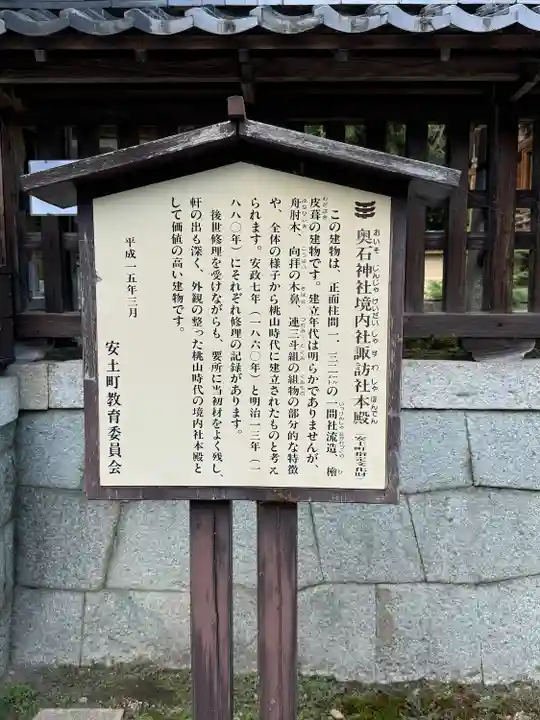 奥石神社境内社諏訪社本殿 安土町指定文化財
この建物は、正面柱間一．三二㍍の一間社流造、檜
皮葺の建物です。建立年代は明らかでありませんが、
舟肘木、向拝の木鼻、連三斗組の組物の部分的な特徴
や、全体の様子から桃山時代に建立されたものと考え
られます。安政七年（一八六〇年）と明治一三年（一
八八〇年）にそれぞれ修理の記録があります。
後世修理を受けながらも、要所に当初材をよく残し、
軒の出も深く、外観の整った桃山時代の境内社本殿と
して価値の高い建物です。
平成一五年三月
安土町教育委員会